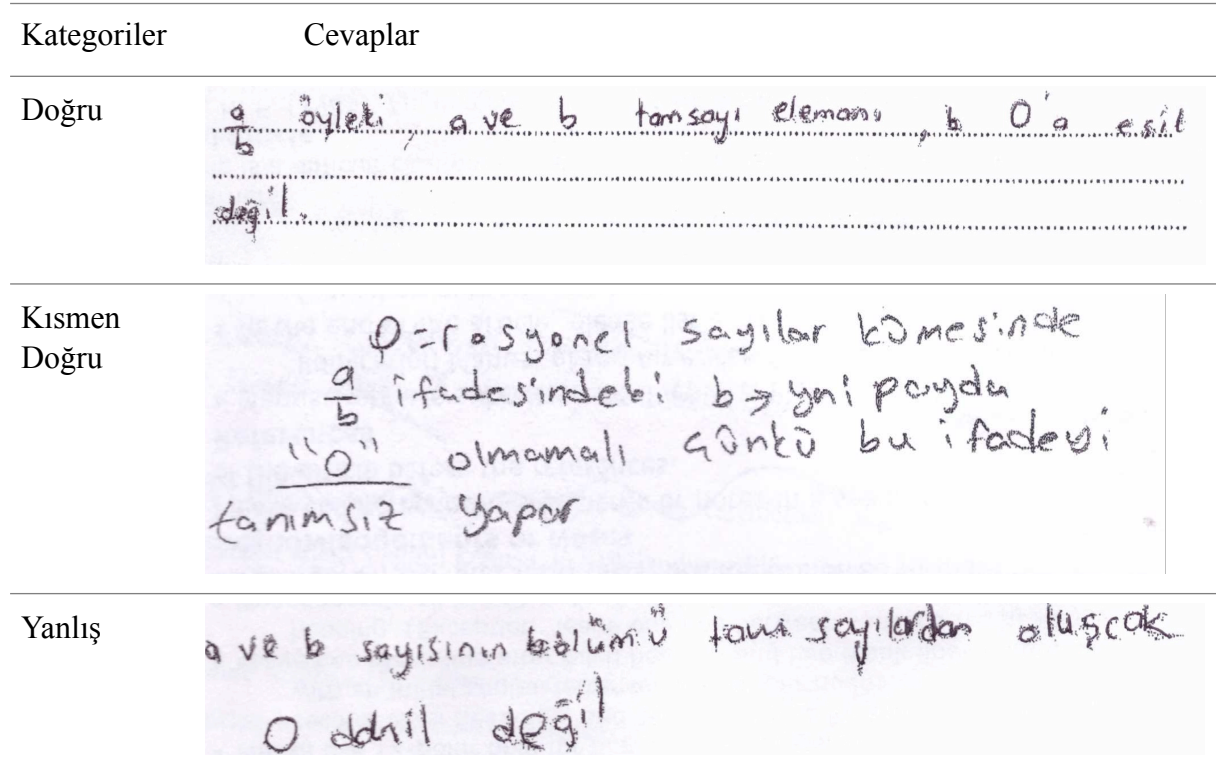 Kategoriler Cevaplar
Doğru
a/b öyleki, a ve b tamsayı elemanı, b 0'a eşit
değil.
Kısmen
Doğru
Q=rasyonel sayılar kümesinde
a/b ifadesindeki b → yni payda
"0" olmamalı çünkü bu ifadeyi
tanımsız yapar
Yanlış
a ve b sayısının bölümü tam sayılardan oluşcak
0 dahil değil